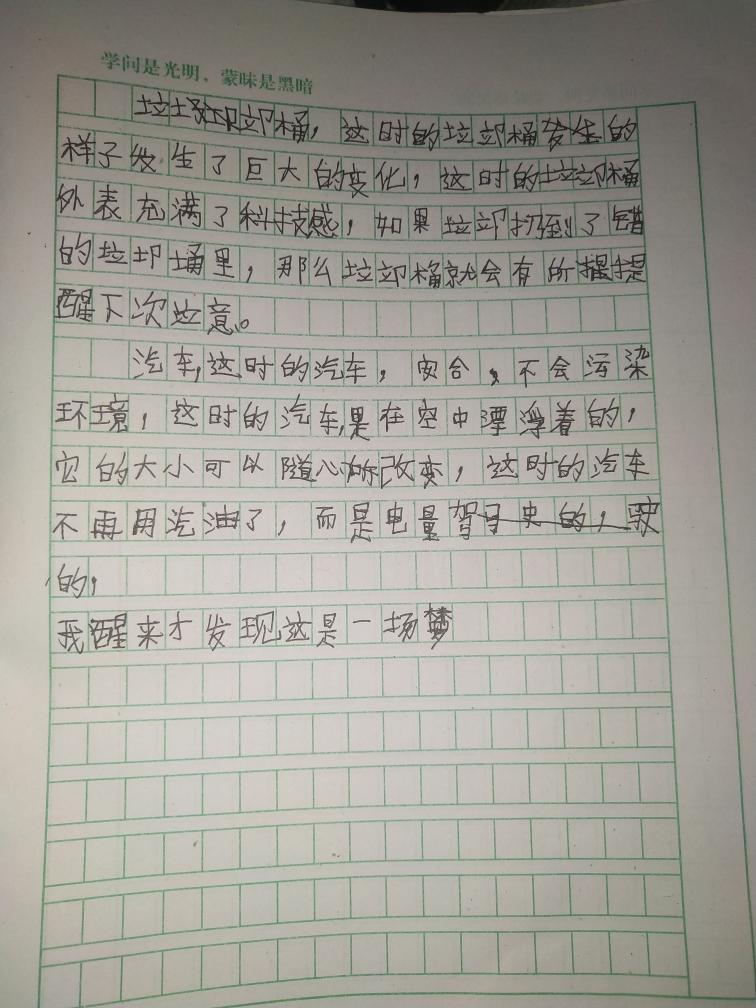 学问是光明，蒙昧是黑暗
垃圾桶，这时的垃圾桶发生的
样子发生了巨大的变化，这时的垃圾桶
外表充满了科技感，如果垃圾扔到了错
的垃圾桶里，那么垃圾桶就会有所提
醒下次注意。
汽车，这时的汽车，安合，不会污染
环境，这时的汽车，是在空中漂浮着的，
它的大小可以随心改变，这时的汽车
不再用汽油了，而是电量驾驶
的，
我醒来才发现这是一场梦